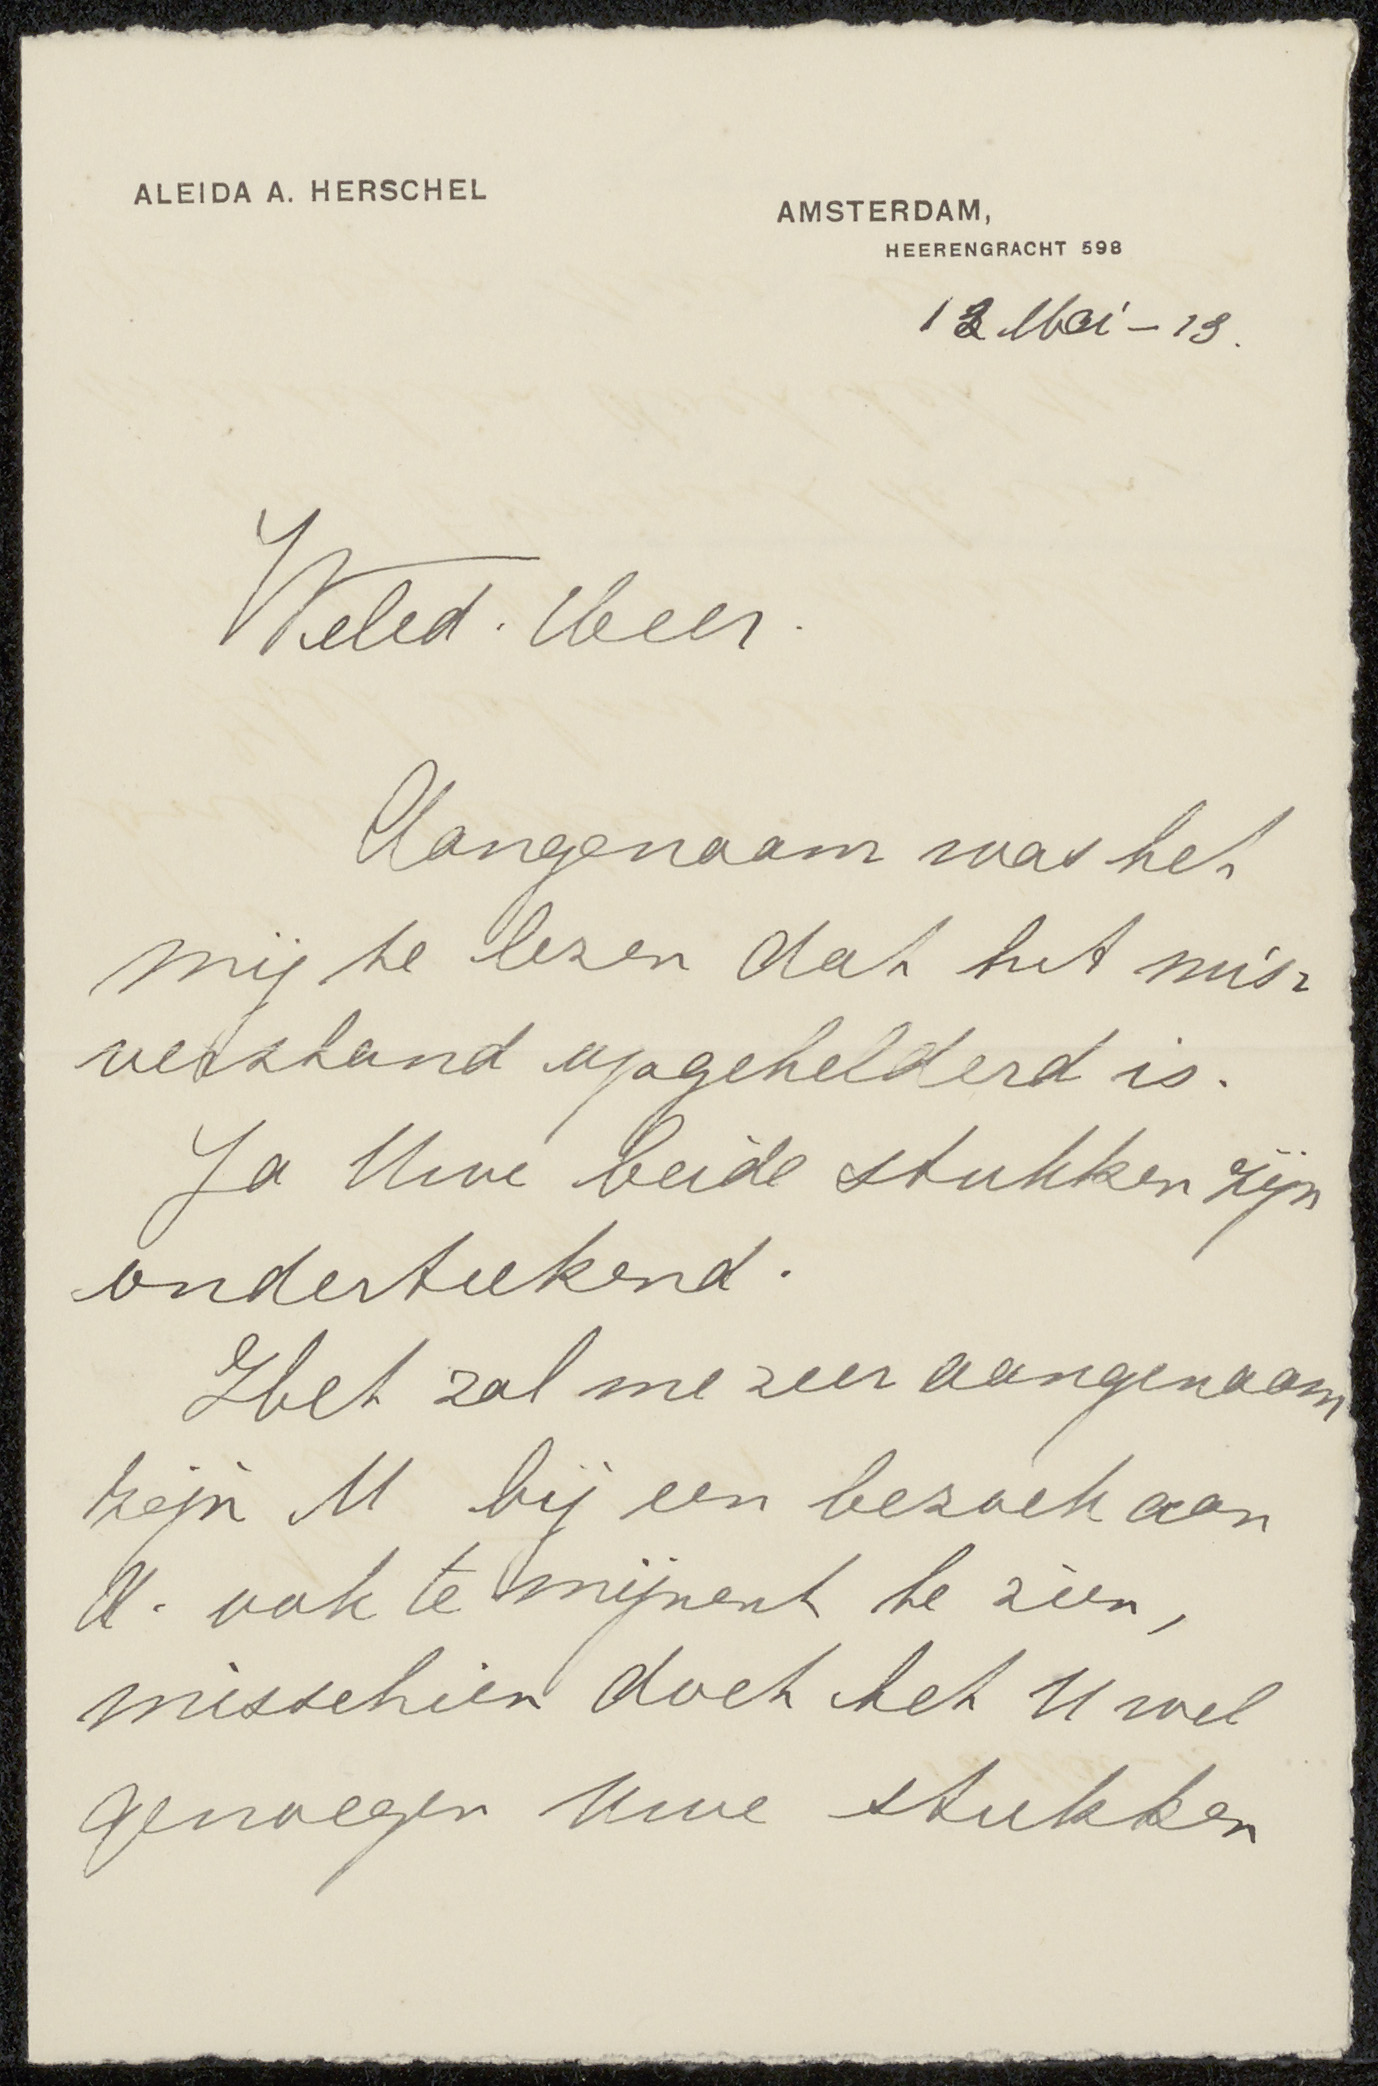 ALEIDA A. HERSCHEL
AMSTERDAM,
HEERENGRACHT 598
Mei - 13.
Weled. Heer.
Aangenaam was het
mij te lezen dat het mis-
verstand opgehelderd is.
Ja Uwe beide stukken zijn
onderteekend.
Het zal me zeer aangenaam
zijn U bij een bezoek aan
A. ook te mijnent te zien,
misschien doet het U wel
genoegen Uwe stukken